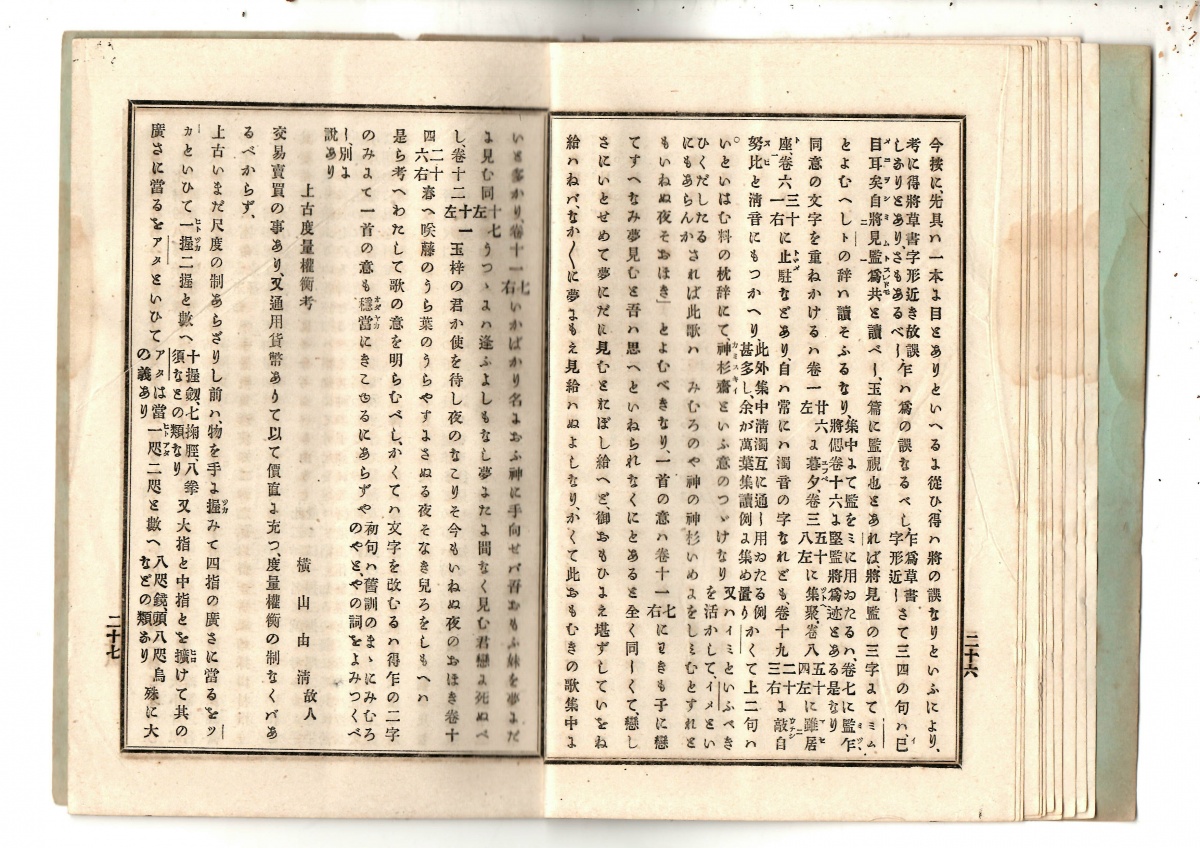 今按に、先具ハ一本よ目とありといへるよ從ひ、得ハ將の誤なりといふにより、
考に得將草書字形近き故誤しありとあり、さもあるべし、乍ハ爲の誤なるべし、乍爲草書字形近しさて三四の句ハ已
目耳矣自將見監爲共と讀べし、玉篇に監視也とあれば將見監の三字よてミム
とよむへし、トの辞ハ讀そふるなり、集中よて監をミに用ゐたるハ、卷七に監乍將偲卷十六よ竪監將爲迹とある是なり
同意の文字を重ねかけるハ卷一廿六左よ暮夕卷三五十八左に集聚、卷八五十四左に雖居
座卷六三十一右に止駐などあり、自ハ常にハ濁音の字なれども、卷十九二十三右よ敲自
努比と清音にもつかへり此外集中清濁互に通し用ゐたる例甚多し、余が萬葉集讀例よ集め置りかくて上二句ハ
いといはむ料の枕辞にて神杉齋といふ意のつゝけなり又ハイミといふべきを活かして、イメといひくだしたるにもあらんか
されば此歌ハ みむろのや神の神杉いめよをしミむとすれと
もいねぬ夜そおほき」とよむべきなり、一首の意ハ卷十一七右にワきも子に戀
てすへなみ夢見むと吾ハ思へといねられなくにとあると全く同しくて、戀し
さにいとせめて夢にだに見むとおぼし給へど、御おもひよえ堪ずしていをね
給ハねバ、なか〱に夢よもえ見給ハぬよしなり、かくて此おもむきの歌集中よ
二十六
いと多かり、卷十一七右いかばかり名よおふ神に手向せバ吾おもふ妹を夢よだ
よ見む同十七左うつゝよハ逢ふよしもなし夢よたよ間なく見む君戀よ死ぬべ
し、卷十二十一左玉梓の君か使を待し夜のなこりそ今もいねぬ夜のおほき卷十
四二十六右春へ咲藤のうら葉のうらやすよさぬる夜そなき兒ろをしもへハ
是ら考へわたして歌の意を明らむべし、かくてハ文字を改むるハ得乍の二字
のみよて一首の意も穩當にきこゆるにあらずや初句ハ舊訓のまゝにみむろのやとやの詞をよみつくべし、別よ説あり
上古度量權衡考
橫山由清故人
交易賣買の事あり、又通用貨幣ありて以て價直よ充つ、度量權衡の制なくバあ
るべからず、
上古いまだ尺度の制あらざりし前ハ物を手よ握みて四指の廣さに當るをツ
カといひて一握二握と數へ十握劔、七掬脛、八拳須などの類なり又大指と中指とを擴けて其の
廣さに當るをアタといひてアタは當の義あり一咫二咫と數へ八咫鏡、頭八咫烏などの類あり殊に大
二十七